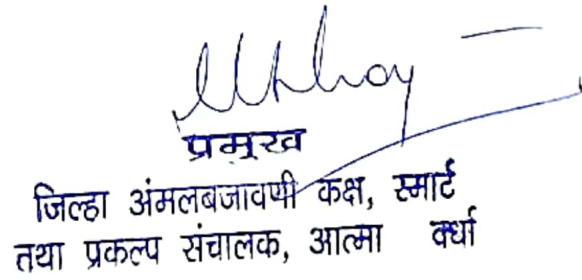 प्रमुख
जिल्हा अंमलबजावणी कक्ष, स्मार्ट
तथा प्रकल्प संचालक, आत्मा वर्धा